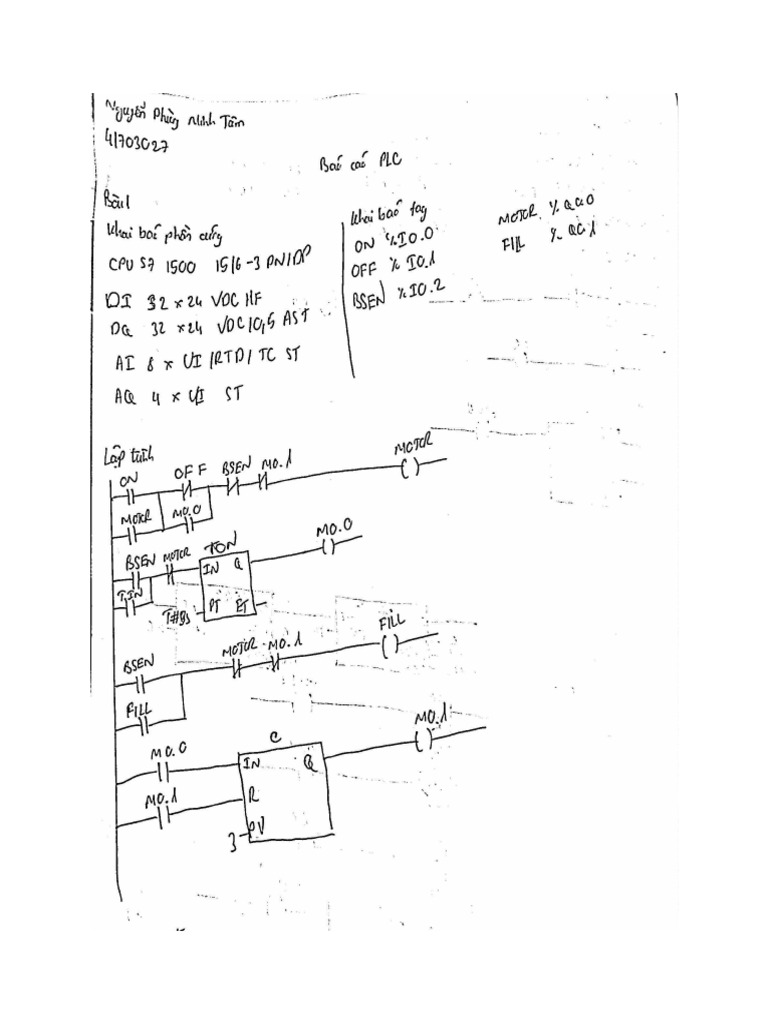 Nguyễn Phùng Minh Tâm
41703027
Baó caó PLC
Bài 1
Khai baó phần cứng
CPU S7 1500 1516-3 PN/DP
DI 32 x 24 VDC HF
DQ 32 x 24 VDC/0,5 AST
AI 8 x U/I /RTD/ TC ST
AQ 4 x U/I ST
Khai baó tag
ON %I0.0
OFF % I0.1
BSEN %I0.2
MOTOR % Q0.0
FILL % Q0.1
Lập trình
ON OFF BSEN M0.1 MOTOR
MOTOR M0.0
BSEN MOTOR TON M0.0
IN Q
T.IN
PT ET
BSEN MOTOR M0.1 FILL
FILL
M0.0 C M0.1
IN Q
M0.1 R
3 PV